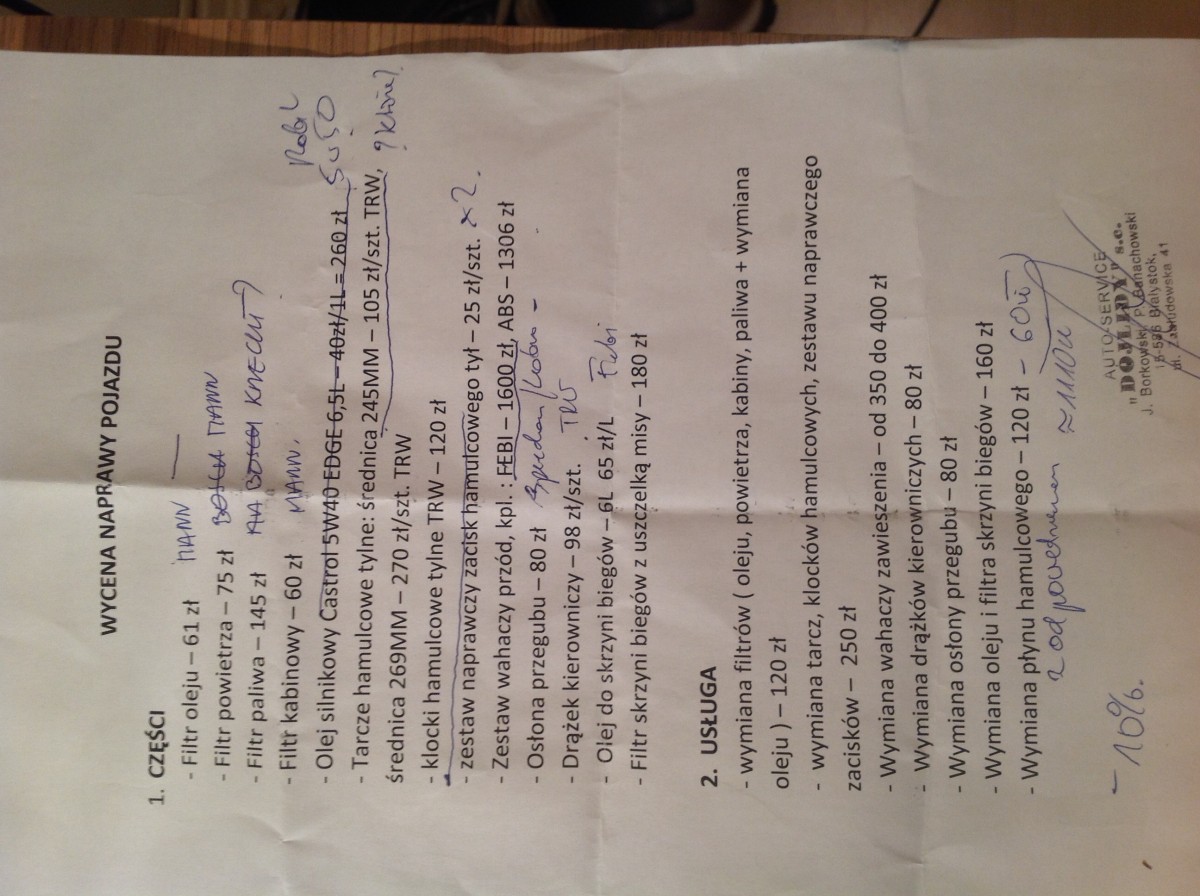 WYCENA NAPRAWY POJAZDU
1. CZĘŚCI
- Filtr oleju – 61 zł MANN
- Filtr powietrza – 75 zł BOSCH MANN
- Filtr paliwa – 145 zł BOSCH KNECHT
- Filtr kabinowy – 60 zł MANN.
- Olej silnikowy Castrol 5W40 EDGE 6,5L – 40zł/1L = 260 zł 5W50
- Tarcze hamulcowe tylne: średnica 245MM – 105 zł/szt. TRW, ? które?
średnica 269MM – 270 zł/szt. TRW
- klocki hamulcowe tylne TRW – 120 zł
- zestaw naprawczy zacisk hamulcowego tył – 25 zł/szt. x 2.
- Zestaw wahaczy przód, kpl. : FEBI – 1600 zł, ABS – 1306 zł
- Osłona przegubu – 80 zł
- Drążek kierowniczy – 98 zł/szt. TRW
- Olej do skrzyni biegów – 6L 65 zł/L Febi
- Filtr skrzyni biegów z uszczelką misy – 180 zł
2. USŁUGA
- wymiana filtrów ( oleju, powietrza, kabiny, paliwa + wymiana
oleju ) – 120 zł
- wymiana tarcz, klocków hamulcowych, zestawu naprawczego
zacisków – 250 zł
- Wymiana wahaczy zawieszenia – od 350 do 400 zł
- Wymiana drążków kierowniczych – 80 zł
- Wymiana osłony przegubu – 80 zł
- Wymiana oleju i filtra skrzyni biegów – 160 zł
- Wymiana płynu hamulcowego – 120 zł – 60zł
z odpowietrzeniem
– 10%.
AUTO-SERVICE
"DOJLIDY" s.c.
J. Borkowski, P. Banachowski
15-585 Białystok,
ul. Zabłudowska 41